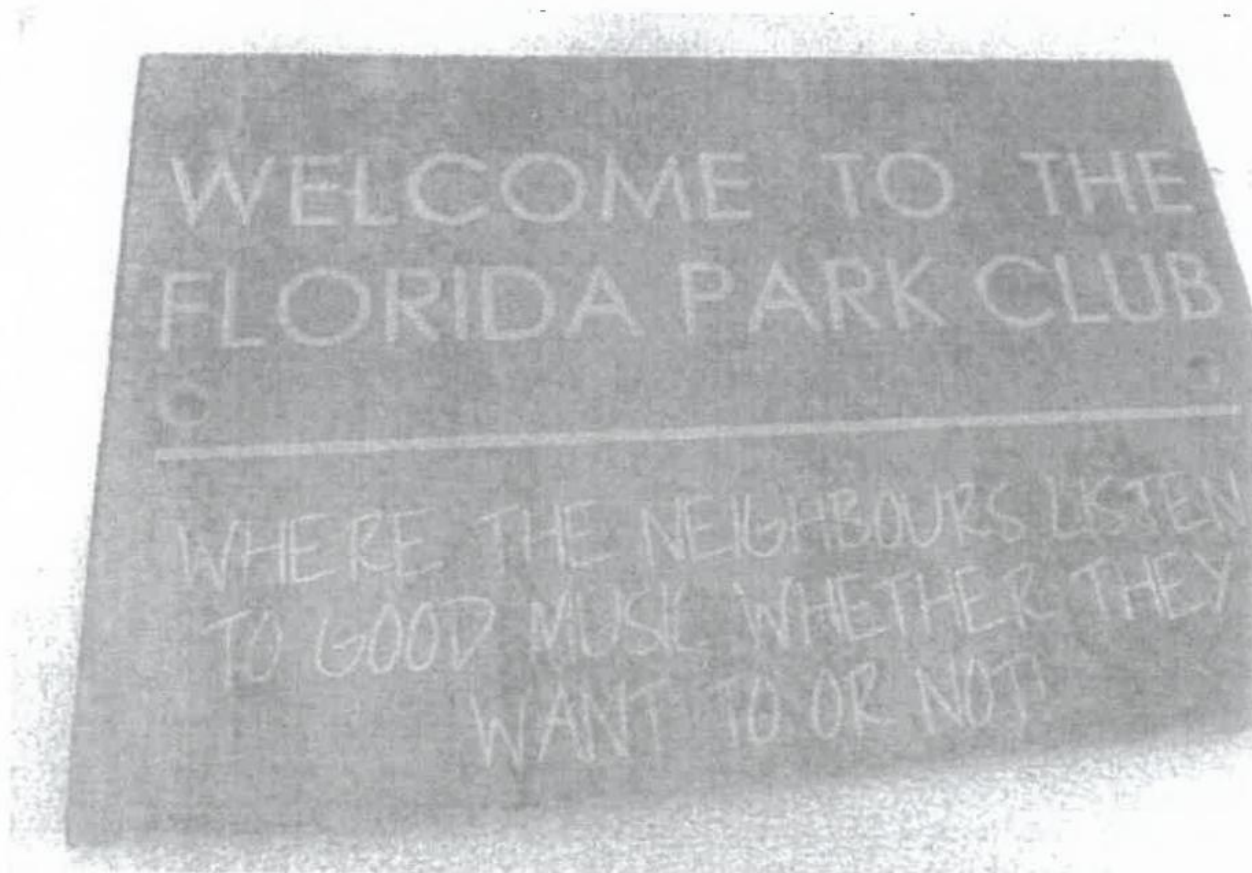 WELCOME TO THE
FLORIDA PARK CLUB
WHERE THE NEIGHBOURS LISTEN
TO GOOD MUSIC WHETHER THEY
WANT TO OR NOT!